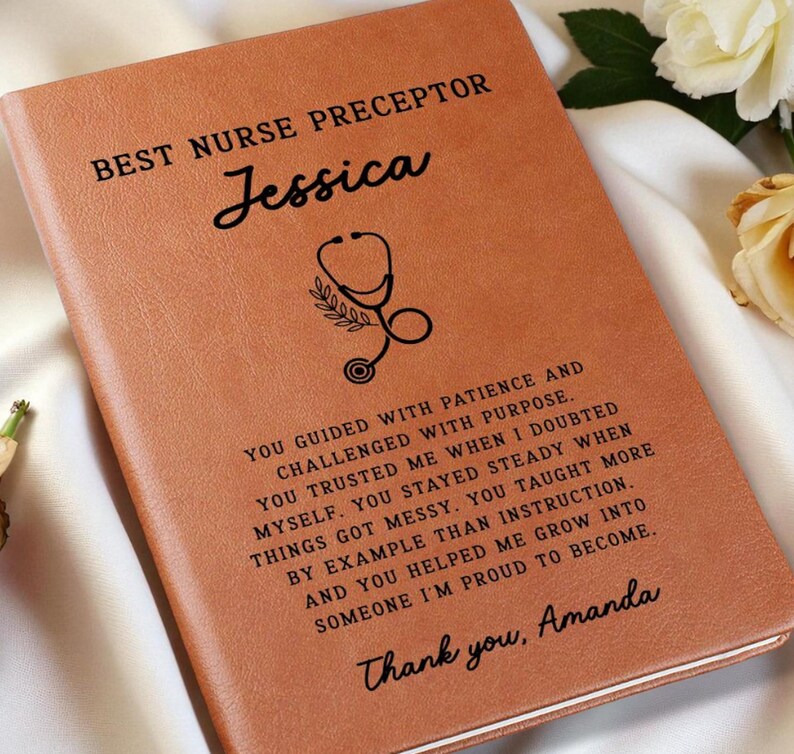 BEST NURSE PRECEPTOR
Jessica
YOU GUIDED WITH PATIENCE AND
CHALLENGED WITH PURPOSE.
YOU TRUSTED ME WHEN I DOUBTED
MYSELF. YOU STAYED STEADY WHEN
THINGS GOT MESSY. YOU TAUGHT MORE
BY EXAMPLE THAN INSTRUCTION.
AND YOU HELPED ME GROW INTO
SOMEONE I'M PROUD TO BECOME.
Thank you, Amanda